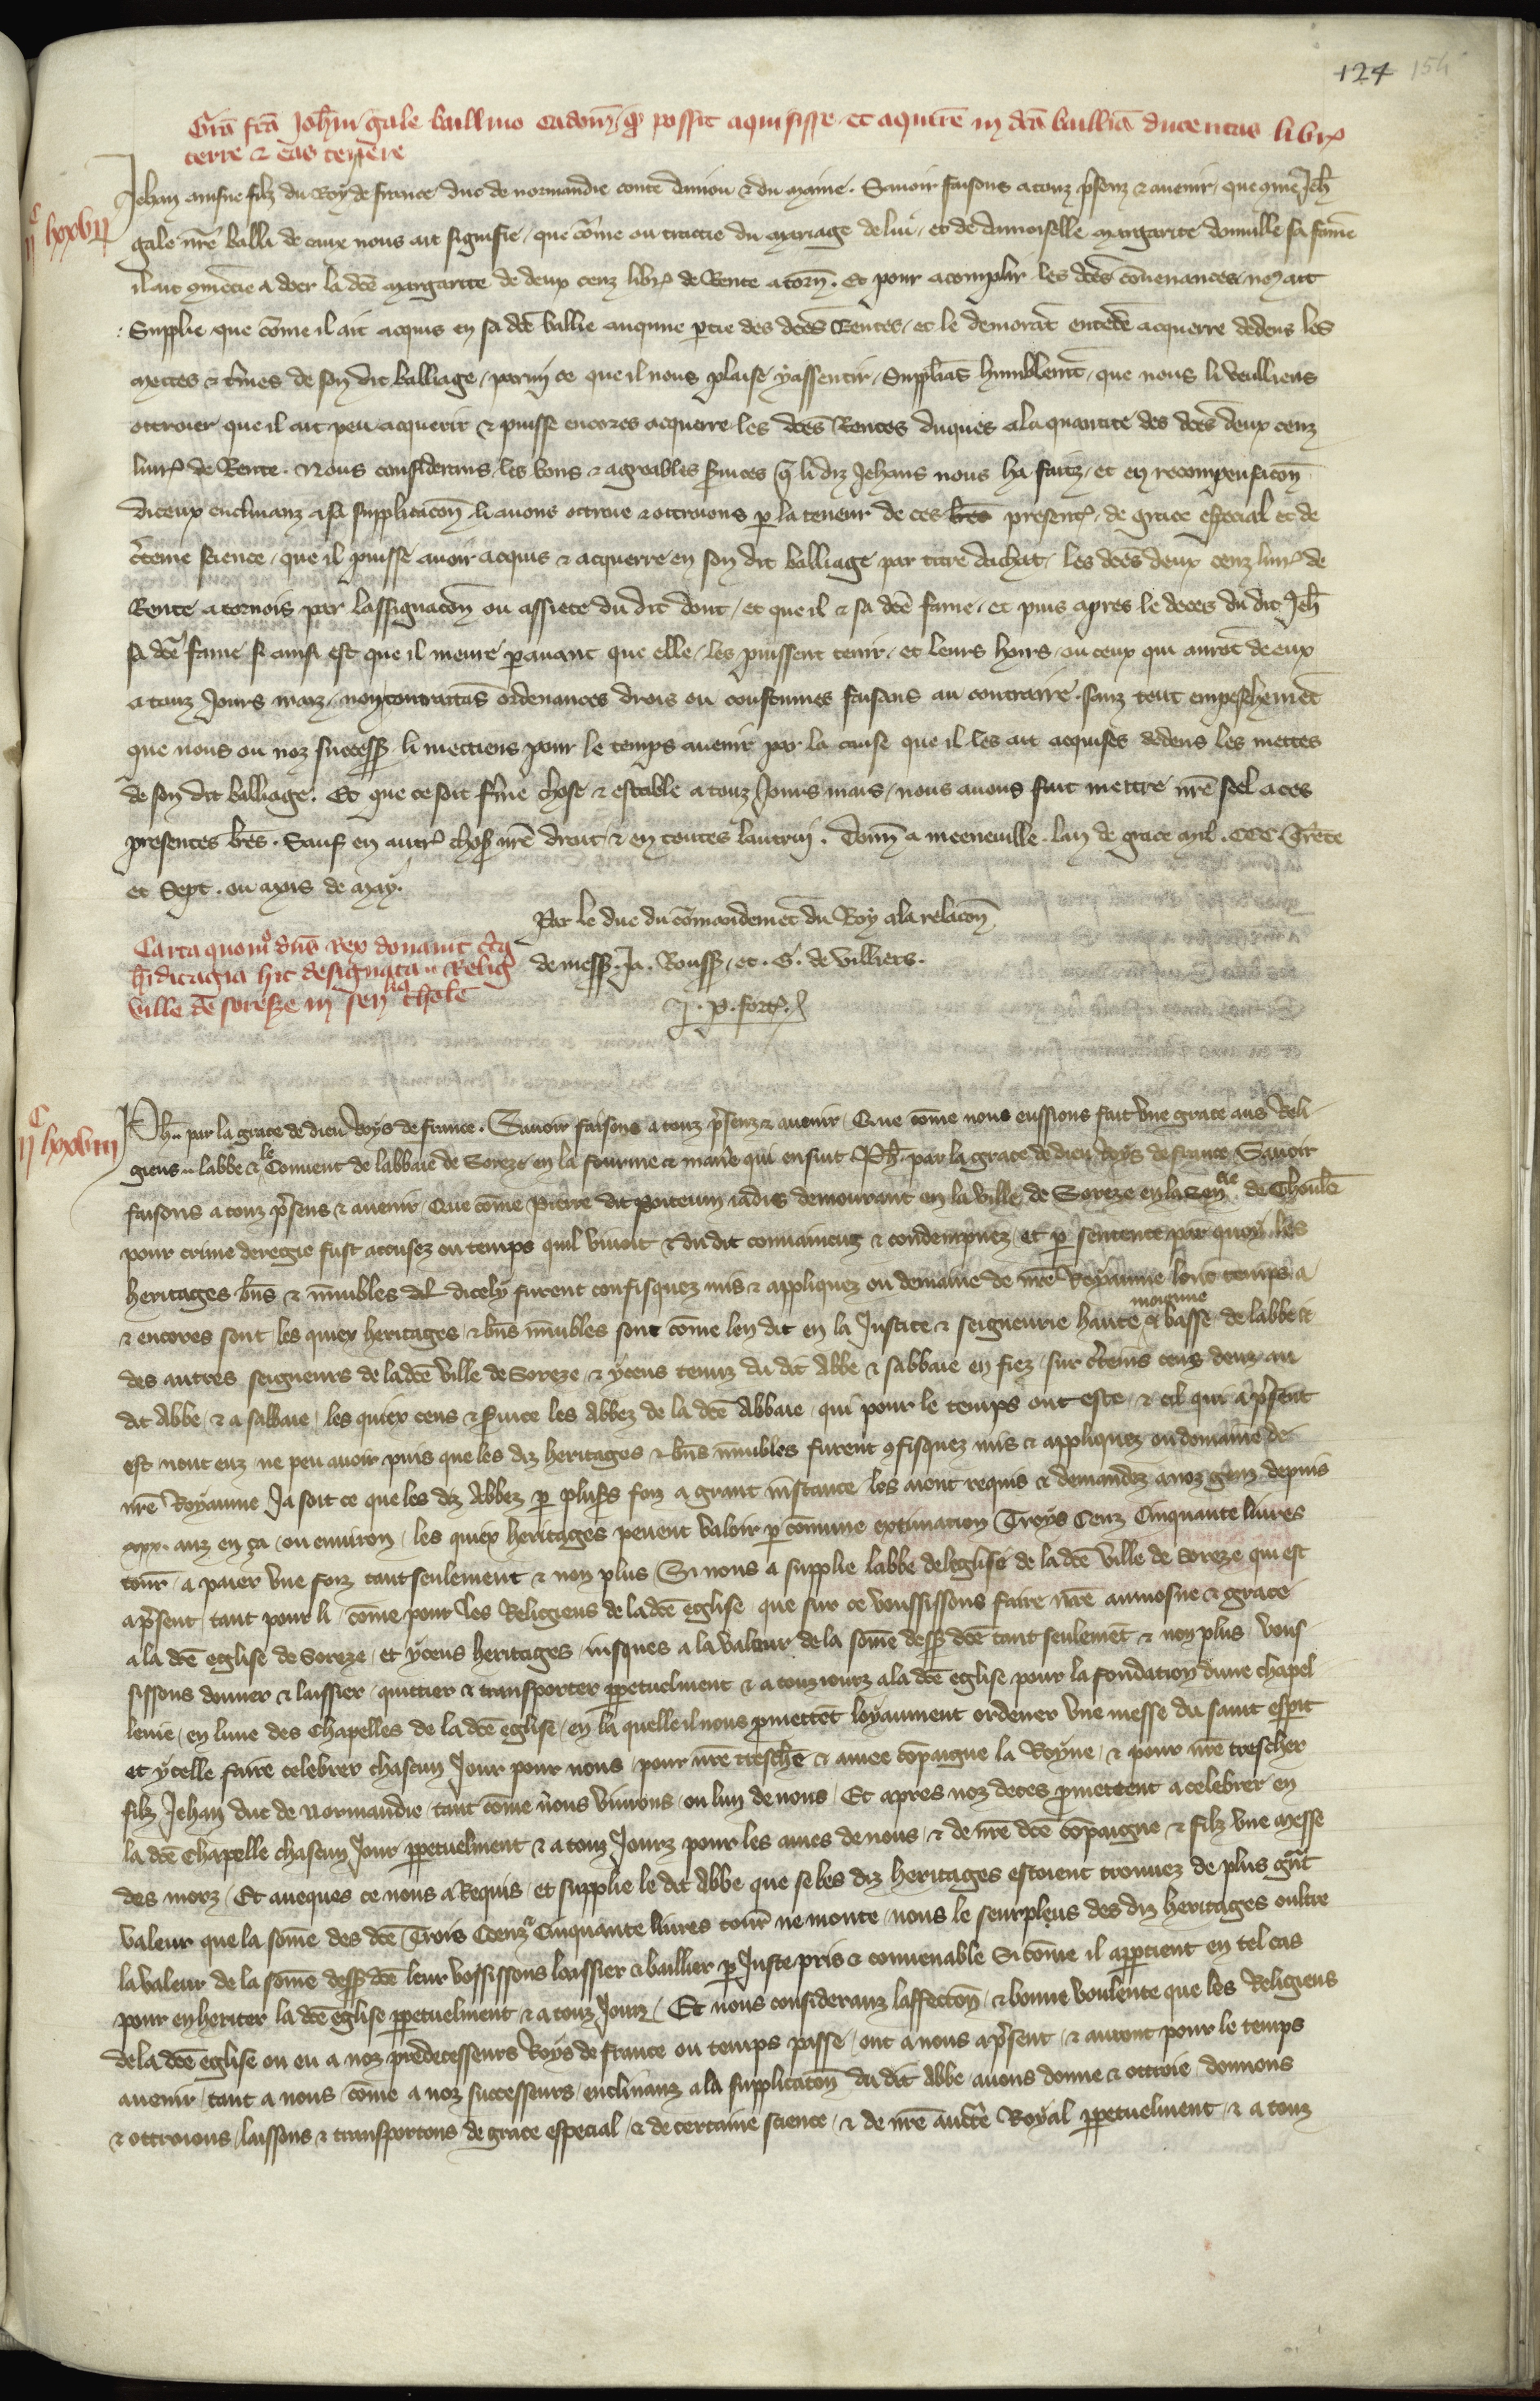 124 154
Gra fca Johi gale baillivo cadom q possit aquisisse et aquirere in dca baillia ducentas libr
terre & eas tenere
IIc lxxvII
Jehan ainsne filz du Roy de france duc de normandie conte daniou & du maine. Savoir faisons a touz psenz & avenir que come Jeh
gale nre balli de caux nous ait signifie que come ou traictie du mariage de lui et de damoiselle margarite sa fame
il ait a doer la dce margarite de deux cenz libr de Rente a torn. Et pour acomplir les dces convenances no ait
Supplie que come il ait acquis en sa dce ballie aucune ptie des dces Rentes et le demorat entede acquerre dedens les
mettes & tmes de son dit balliage parmi ce que il nous plaise y assentir Suppliãs humblemt que nous li veulliens
ottroier que il ait peu acquerir & puisse encores acquerre les dces Rentes duques a la quantite des dces deux cenz
livr de Rente. Nous considerans les bons & agreables svices q li diz Jehans nous ha faitz et en recompensacon
diceux enclinanz a sa supplicacon li avons ottroie & ottroions p la teneur de ces lres present de grace especial et de
cteine science que il puisse avoir acquis & acquerre en son dit balliage par titre dachat les dces deux cenz livr de
Rente a tornois par lassignacon ou assiete du dit dont et que il & sa dce fame et puis apres le deces du dit Jeh
sa dce fame se ainsi est que il meure pavant que elle les puissent tenir et leurs hoirs ou ceux qui aurot de eux
a touz Jours maiz non contrastas ordenances drois ou coustumes faisans au contraire sanz tout empeschemet
que nous ou noz success li mettiens pour le temps avenir par la cause que il les ait acquises dedens les mettes
de son dit balliage. Et que ce soit fme chose & estable a touz Jours mais nous avons fait mettre nre seel a ces
presentes lres. Sauf en autr chos nre droit & en toutes lautrui. Donn a meeneville lan de grace mil CCC Trete
et Sept ou mois de may.
Par le duc du comandemet du Roy a la relacon
de mess Ja. Rouss et G. de Villiers.
J. P. fort
Carta quom dns Rex donavit cta
hditagia hic designata Relig
ville de soresze in senlia thole
IIc lxxvIII
Ph. par la grace de dieu Roys de france. Savoir faisons a touz psenz & avenir Que come nous eussions fait une grace aus Reli
gieus labbe & le Convent de labbaie de Soreze en la fourme & manie qui ensuit Ph. par la grace de dieu Roys de france Savoir
faisons a touz psens & avenir Que come Pierre dit Ponteum iadis demourant en la ville de Soreze en la Sencie de Thoule
pour crime deregie fust accusez ou temps quil vivoit & du dit convaincuz & condempnez et p sentence par quoy les
heritages bns & muubles dicely furent confisquez mis & appliquez ou demaine de nre Royaume lonc temps a
& encores sont les quiex heritages & bns muubles sont come len dit en la Justice & seigneurie haute moienne & basse de labbe &
des autres seigneurs de la dce ville de Soreze & yceus tenuz du dit abbe & sabbaie en fiez sur cteins cens deuz au
dit Abbe & a sabbaie les quiex cens & svice les Abbez de la dce Abbaie qui pour le temps ont este & cil qui a psent
est nont euz ne peu avoir puis que les diz heritages & bns muubles furent 9fisquez mis & appliquez ou domaine de
nre Royaume Ja soit ce que les diz Abbez p plusrs foiz a grant instance les aient requis & demandez a noz genz depuis
xxx. anz en ca ou environ les quiex heritages pevent valoir p comune extimation Troys Cenz Cinquante livres
tour a paier une foiz tant seulement & non plus Si nous a supplie labbe de leglise de la dce ville de Soreze qui est
a psent tant pour li come pour les Religieus de la dce eglise que sur ce voussissons faire nre aumosne & grace
a la dce eglise de Soreze et yceus heritages iusques a la valeur de la some dess dce tant seulemet & non plus vous
sissons donner & laissier quittier & transporter ppetuelment & a touz iourz a la dce eglise pour la fondation dune chapel
lenie en lune des Chapelles de la dce eglise en la quelle il nous pmettet loyaument ordener une messe du saint espit
et ycelle faire celebrer chascun Jour pour nous pour nre treschie & amee copaigne la Royne & pour nre trescher
filz Jehan duc de Normandie tant come nous vivrons ou lun de nous Et apres noz deces pmettent a celebrer en
la dce Chapelle chascun Jour ppetuelment & a touz Jourz pour les ames de nous & de nre dce copaigne & filz une messe
des morz Et aveques ce nous a Requis et supplie le dit Abbe que se les diz heritages estoient trouvez de plus gnt
valeur que la some des dce Trois Cenz Cinquante livres tour ne monte nous le seurpleus des diz heritages oultre
la valeur de la some dess dce leur vossissons laissier & baillier p Juste pris & convenable Si come il apptient en tel cas
pour enheriter la dce eglise ppetuelment & a touz Jourz Et nous consideranz laffection & bonne voulente que les Religieus
de la dce eglise ou eu a noz predecesseurs Roys de france ou temps passe ont a nous a psent & auront pour le temps
avenir tant a nous come a noz successeurs enclinanz a la supplicacion du dit Abbe avons donne & ottroie donnons
& ottroions laissons & transportons de grace especial & de certaine science & de nre aucte Royal ppetuelment & a touz